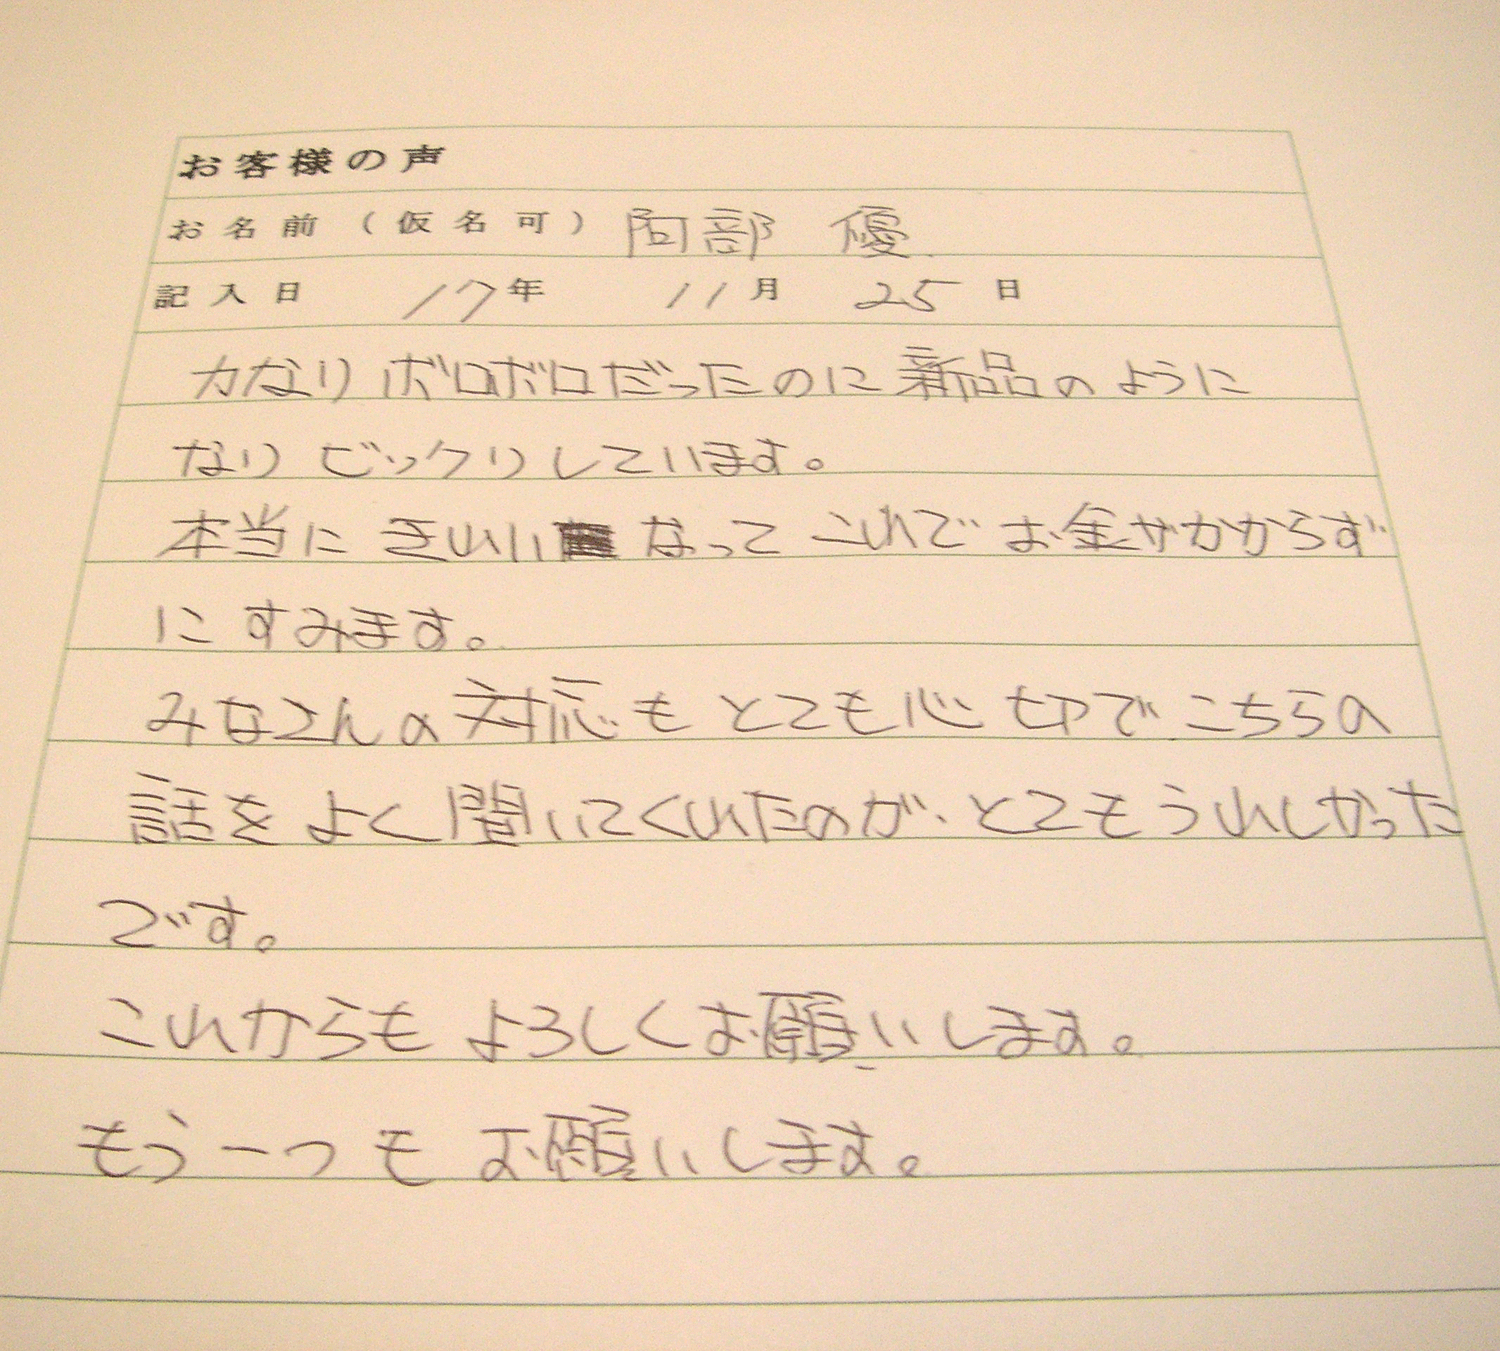 お客様の声
お名前（仮名可） 阿部 優
記入日 17年 11月 25日
かなりボロボロだったのに新品のように
なりビックリしています。
本当に きれい なって これで お金がかからず
に すみます。
みなさんの対応も とても心切で こちらの
話を よく聞いてくれたのが、とてもうれしかった
です。
これからも よろしくお願いします。
もう一つも お願いします。